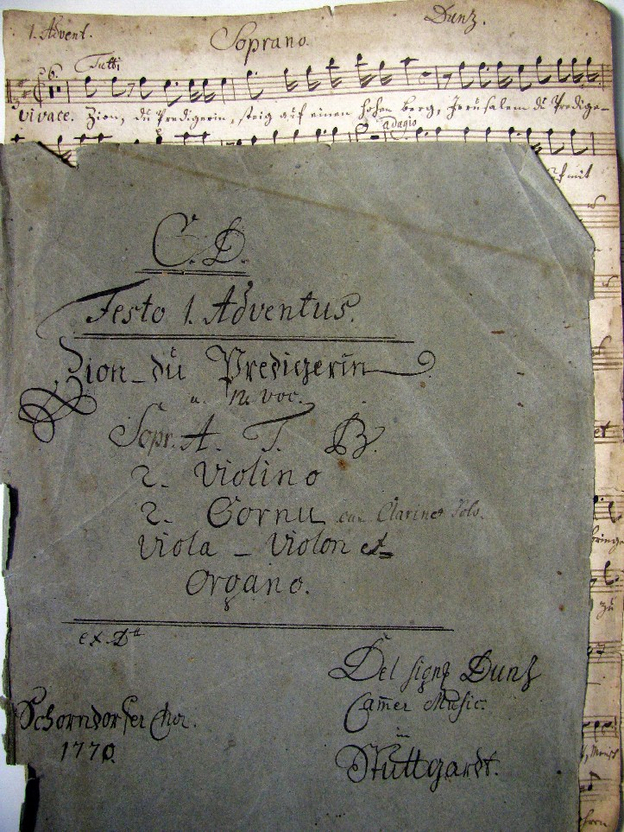 1. Advent.
Soprano.
Dunz.
Tutti
vivace. Zion, du Predigerin, steig auf einen hohen berg, Jerusalem du Predige-
adagio
mit
C. D.
Festo 1. Adventus.
Zion du Predigerin
a. voc.
Sopr. A. T. B.
2. Violino
2. Cornu Clarinet Solo.
Viola - Violon et
Organo.
ex. D
Del sign Dunz
Camer Music:
in
Stuttgardt.
Schorndorfer Chor.
1770.
et
zu